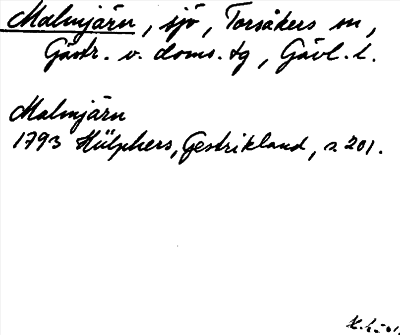 Malmjärn, sjö, Torsåkers sn,
Gästr. v. doms. tg, Gävl. l.
Malmjärn
1793 Hülphers, Gestrikland, s 201.